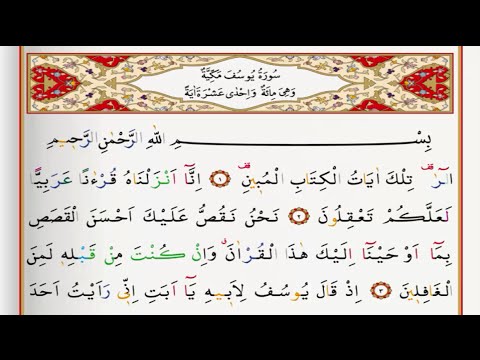 سُورَةُ يُوسُفَ مَكِّيَّةٌ
وَهِيَ مِائَةٌ وَاِحْدٰى عَشْرَةَ اٰيَةً
بِسْــــمِ اللّٰهِ الرَّحْمٰنِ الرَّحٖيـمِ
الٓرٰ۠ قف تِلْكَ اٰيَاتُ الْكِتَابِ الْمُبٖينِ قف ﴿١﴾ اِنَّٓا اَنْزَلْنَاهُ قُرْءٰنًا عَرَبِيًّا
لَعَلَّكُمْ تَعْقِلُونَ ﴿٢﴾ نَحْنُ نَقُصُّ عَلَيْكَ اَحْسَنَ الْقَصَصِ
بِمَٓا اَوْحَيْنَٓا اِلَيْكَ هٰذَا الْقُرْاٰنَۗ وَاِنْ كُنْتَ مِنْ قَبْلِهٖ لَمِنَ
الْغَافِلٖينَ ﴿٣﴾ اِذْ قَالَ يُوسُفُ لِاَبٖيهِ يَٓا اَبَتِ اِنّٖى رَاَيْتُ اَحَدَ